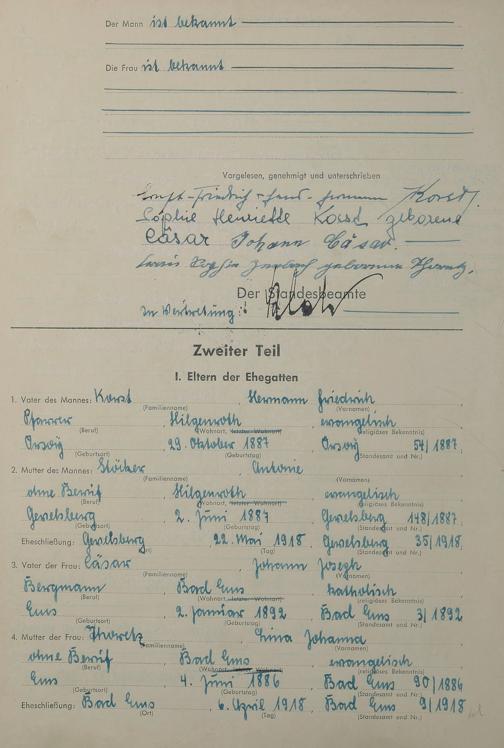 Der Mann ist bekannt
Die Frau ist bekannt
Vorgelesen, genehmigt und unterschrieben
Ernst-Friedrich-Hans-Hermann Korst.
Sophie Henriette Korst geborene
Cäsar Johann Cäsar.
geborene
Der Standesbeamte
In Vertretung:
Zweiter Teil
I. Eltern der Ehegatten
1. Vater des Mannes: Korst Hermann Friedrich
(Familienname) (Vornamen)
Pfarrer Hilgenroth evangelisch
(Beruf) (Wohnort, letzter Wohnort) (religiöses Bekenntnis)
Orsoy 29. Oktober 1887 Orsoy 54/1887
(Geburtsort) (Geburtstag) (Standesamt und Nr.)
2. Mutter des Mannes: Stöcker Antonie
(Familienname) (Vornamen)
ohne Beruf Hilgenroth evangelisch
(Beruf) (Wohnort, letzter Wohnort) (religiöses Bekenntnis)
Gevelsberg 2. Juni 1887 Gevelsberg 148/1887
(Geburtsort) (Geburtstag) (Standesamt und Nr.)
Eheschließung: Gevelsberg 22. Mai 1918 Gevelsberg 35/1918
(Ort) (Tag) (Standesamt und Nr.)
3. Vater der Frau: Cäsar Johann Joseph
(Familienname) (Vornamen)
Bergmann Bad Ems katholisch
(Beruf) (Wohnort, letzter Wohnort) (religiöses Bekenntnis)
Ems 2. Januar 1892 Bad Ems 3/1892
(Geburtsort) (Geburtstag) (Standesamt und Nr.)
4. Mutter der Frau: Lina Johanna
(Familienname) (Vornamen)
ohne Beruf Bad Ems evangelisch
(Beruf) (Wohnort, letzter Wohnort) (religiöses Bekenntnis)
Ems 4. Juni 1886 Bad Ems 90/1886
(Geburtsort) (Geburtstag) (Standesamt und Nr.)
Eheschließung: Bad Ems 6. April 1918 Bad Ems 9/1918
(Ort) (Tag) (Standesamt und Nr.)